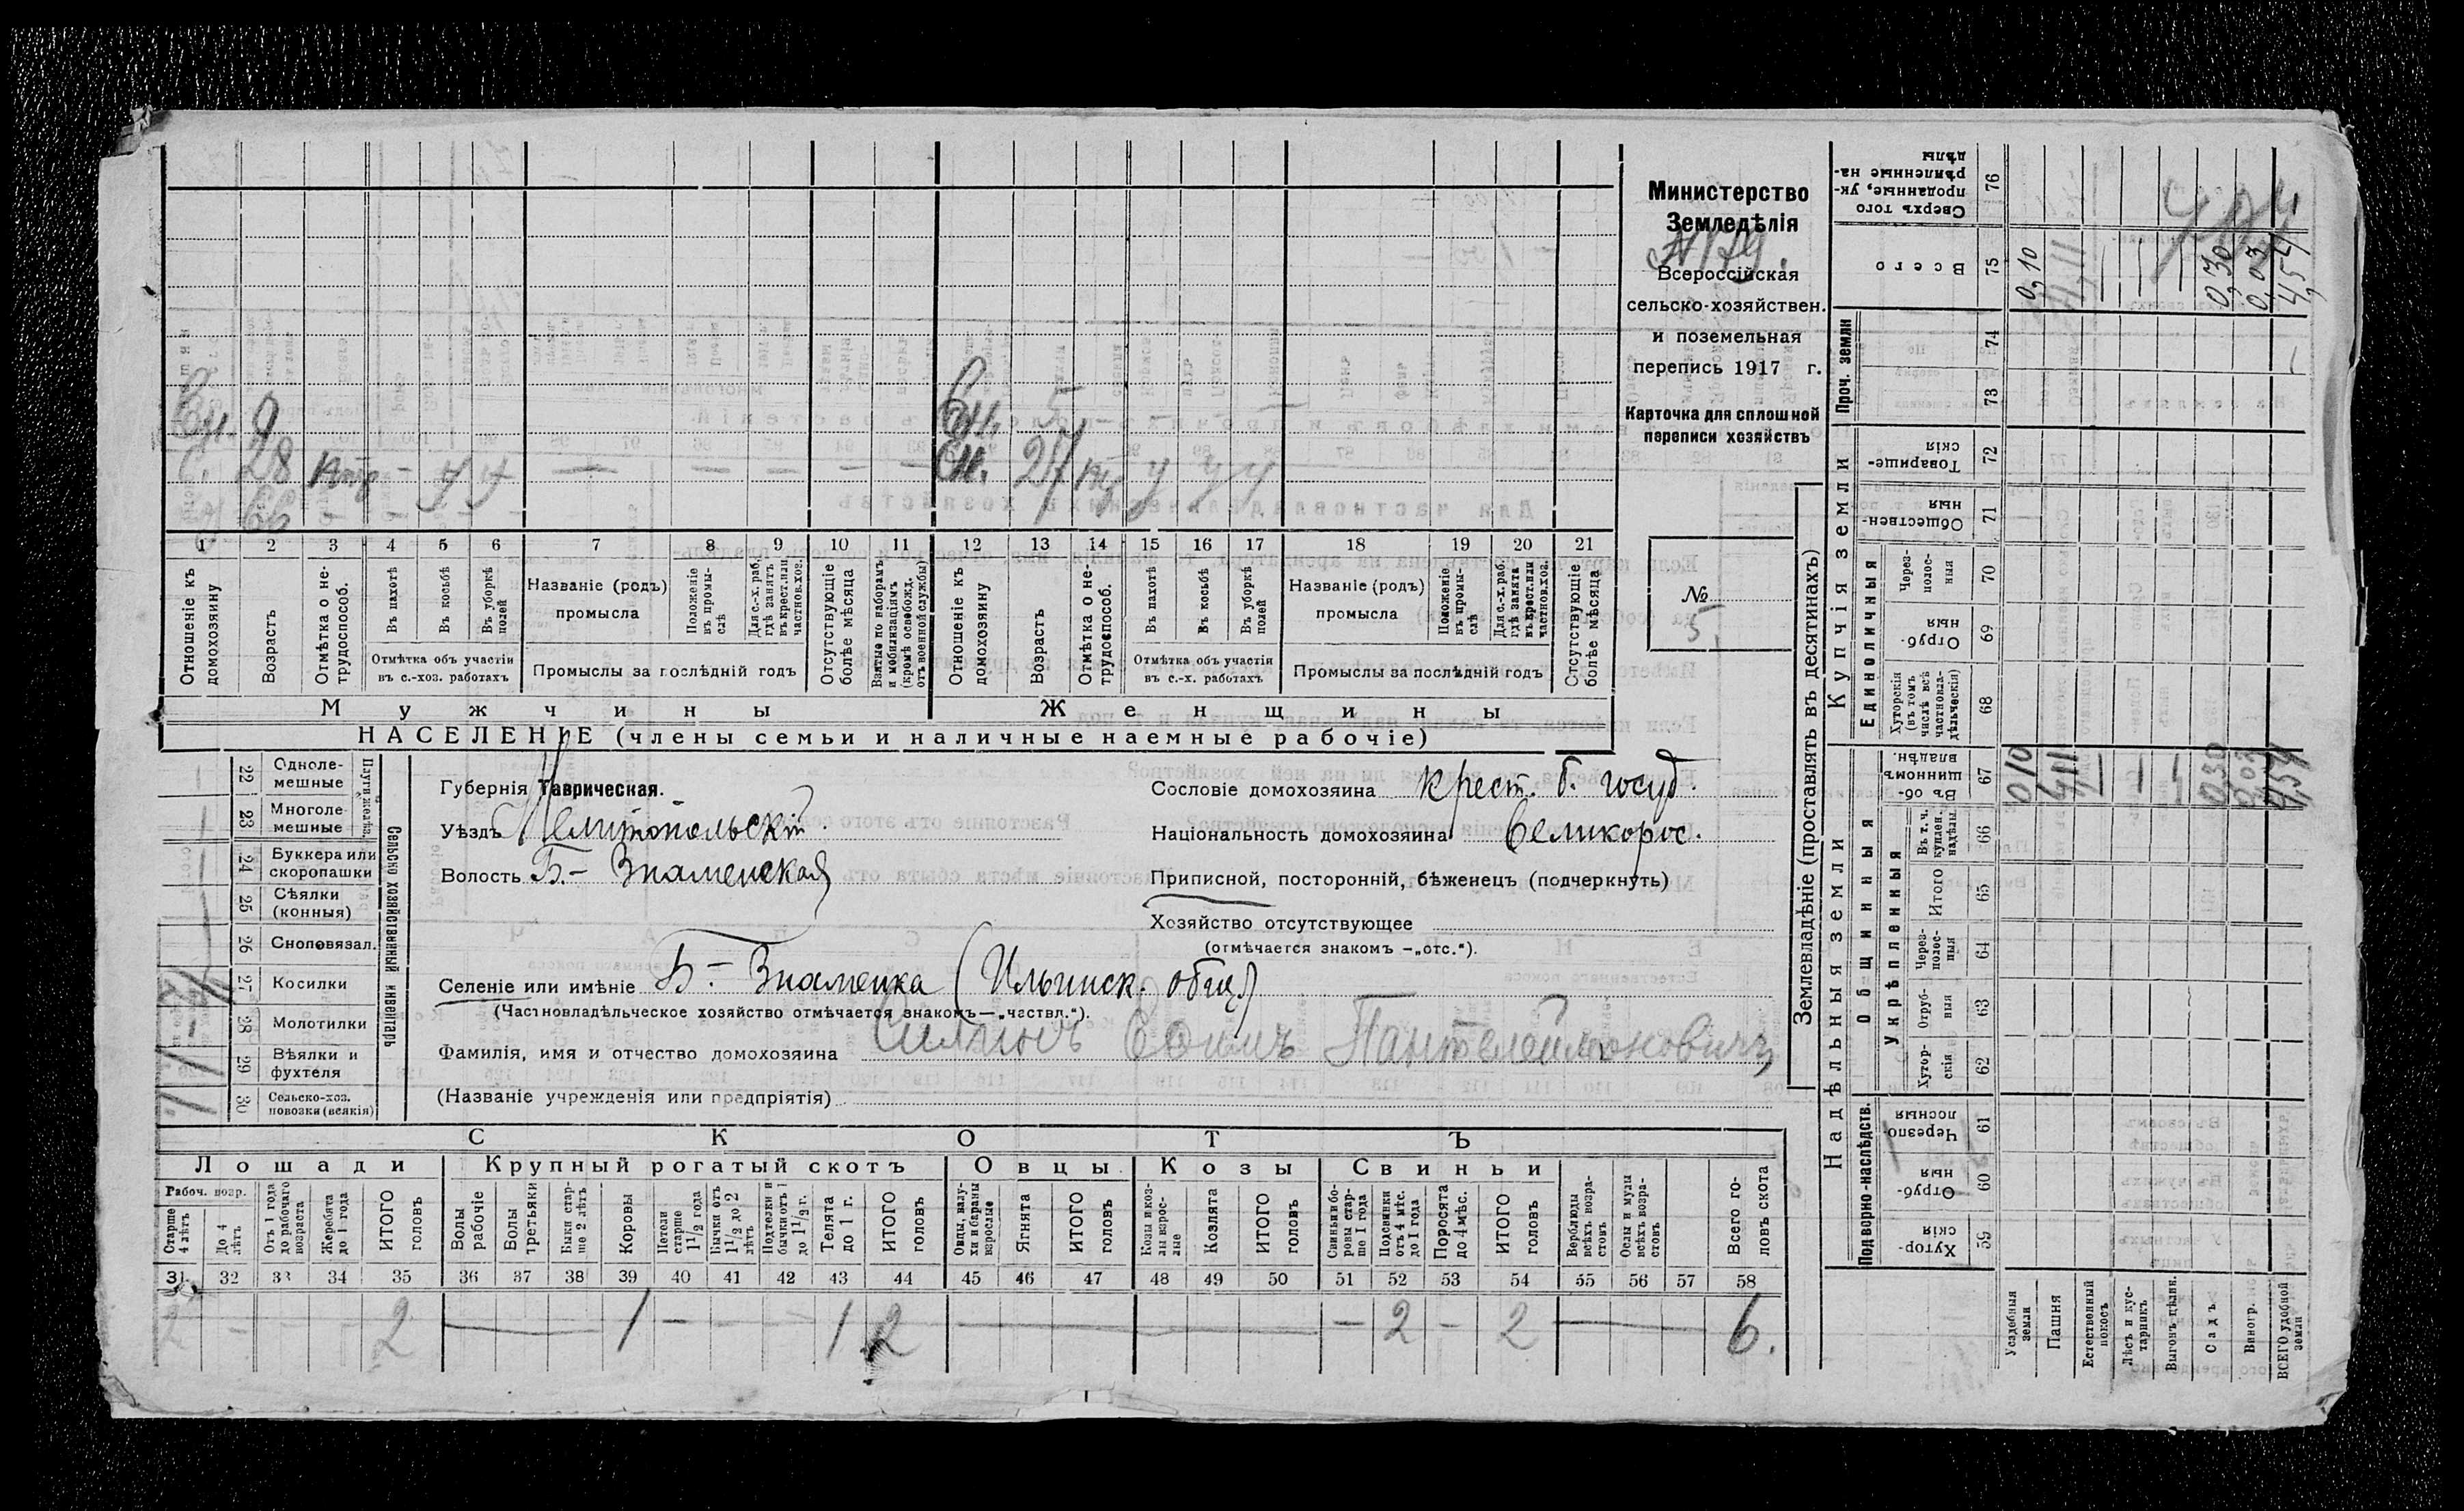 Министерство
Земледѣлія
Всероссійская
сельско-хозяйствен.
и поземельная
перепись 1917 г.
Карточка для сплошной
переписи хозяйствъ
№
5.
Ен. 9
С. 28 – у у — — — — —
66 – – – –
Ен. 5 – – – –
Сн. 27 у у у
1 2 3 4 5 6 7 8 9 10 11 12 13 14 15 16 17 18 19 20 21
Отношеніе къ домохозяину
Возрастъ
Отмѣтка о не-трудоспособ.
Въ пахотѣ
Въ косьбѣ
Въ уборкѣ полей
Отмѣтка объ участіи въ с.-хоз. работахъ
Названіе (родъ) промысла
Положеніе въ промы-слѣ
Для с.-х. раб. гдѣ занятъ въ крест. или частнов. хоз.
Промыслы за послѣдній годъ
Отсутствующіе болѣе мѣсяца
Взятые по наборамъ и мобилизаціямъ (кромѣ освобожд. отъ военной службы)
Отношеніе къ домохозяину
Возрастъ
Отмѣтка о не-трудоспособ.
Въ пахотѣ
Въ косьбѣ
Въ уборкѣ полей
Отмѣтка объ участіи въ с.-х. работахъ
Названіе (родъ) промысла
Положеніе въ промы-слѣ
Для с.-х. раб. гдѣ занята въ крест. или частнов. хоз.
Промыслы за послѣдній годъ
Отсутствующіе болѣе мѣсяца
Мужчины Женщины
НАСЕЛЕНІЕ (члены семьи и наличные наемные рабочіе)
Сельско хозяйственный инвентарь
22 Одноле-мешные
23 Многоле-мешные
24 Буккера или скоропашки
25 Сѣялки (конныя)
26 Сноповязал.
27 Косилки
28 Молотилки
29 Вѣялки и фухтеля
30 Сельско-хоз. повозки (всякія)
Губернія Таврическая.
Уѣздъ Мелитопольскій.
Волость Б.– Знаменская
Сословіе домохозяина крест. б. госуд.
Національность домохозяина Великорос.
Приписной, посторонній, бѣженецъ (подчеркнуть)
Хозяйство отсутствующее
(отмѣчается знакомъ –„отс.“).
Селеніе или имѣніе Б.– Знаменка (Ильинск. общ.)
(Частновладѣльческое хозяйство отмѣчается знакомъ—„частвл.“).
Фамилія, имя и отчество домохозяина Пантелеймоновичъ
(Названіе учрежденія или предпріятія)
СКОТЪ
Лошади Крупный рогатый скотъ Овцы Козы Свиньи
Рабоч. возр.
Старше 4 лѣтъ
До 4 лѣтъ
Отъ 1 года до рабочаго возраста
Жеребята до 1 года
ИТОГО головъ
Волы рабочіе
Волы третьяки
Быки стар-ше 2 лѣтъ
Коровы
Нетели старше 1 1/2 года
Бычки отъ 1 1/2 до 2 лѣтъ
Подтелки и бычки отъ 1 до 1 1/2 г.
Телята до 1 г.
ИТОГО головъ
Овцы, валу-хи и бараны взрослые
Ягнята
ИТОГО головъ
Козы и коз-лы взрос-лые
Козлята
ИТОГО головъ
Свиньи и бо-ровы стар-ше 1 года
Подсвинки отъ 4 мѣс. до 1 года
Поросята до 4 мѣс.
ИТОГО головъ
Верблюды всѣхъ возра-стовъ
Ослы и мулы всѣхъ возра-стовъ
Всего го-ловъ скота
31 32 33 34 35 36 37 38 39 40 41 42 43 44 45 46 47 48 49 50 51 52 53 54 55 56 57 58
2 – – 2 — 1 – – – 1 2 — — – 2 – 2 — 6.
Землевладѣніе (проставлять въ десятинахъ)
Надѣльныя земли Купчія земли Проч. земли
Подворно-наслѣдств.
Общинныя
Укрѣпленныя
Единоличныя
Сверхъ того проданные, ук-рѣпленные на-дѣлы 76
Всего 75
74
73
Товарище-скія 72
Обществен-ныя 71
Через-полос-ныя 70
Отруб-ныя 69
Хуторскія (въ томъ числѣ всѣ частновла-дѣльческія) 68
Въ об-щинномъ владѣн. 67
Въ т. ч. куплен. надѣлы 66
Итого 65
Через-полос-ныя 64
Отруб-ныя 63
Хутор-скія 62
Черезпо-лосныя 61
Отруб-ныя 60
Хутор-скія 59
0,10 4,11 0,30 0,03 4,54
0,10 4,11 0,30 0,03 4,54
Усадебныя земли
Пашня
Естественный покосъ
Лѣсъ и кус-тарникъ
Выгонъ цѣлин.
Садъ
Виногр.
ВСЕГО удобной земли